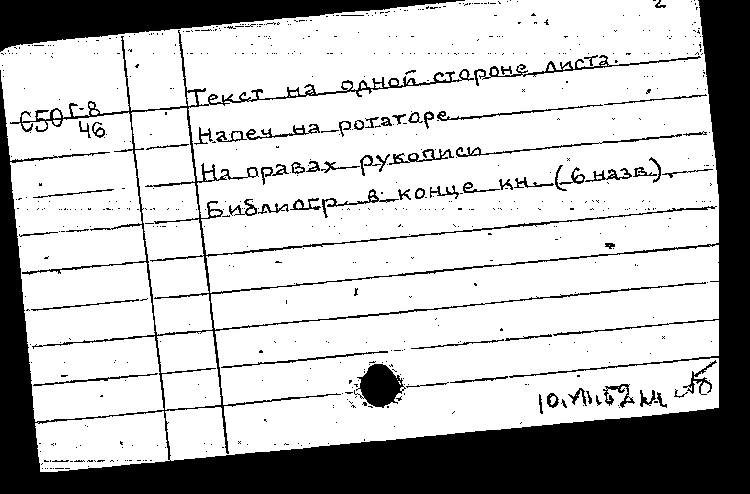 2
Текст на одной стороне листа.
С50 Г-8
46
Напеч на ротаторе
На правах рукописи
Библиогр. в конце кн. (6 назв.).
10.VII.52